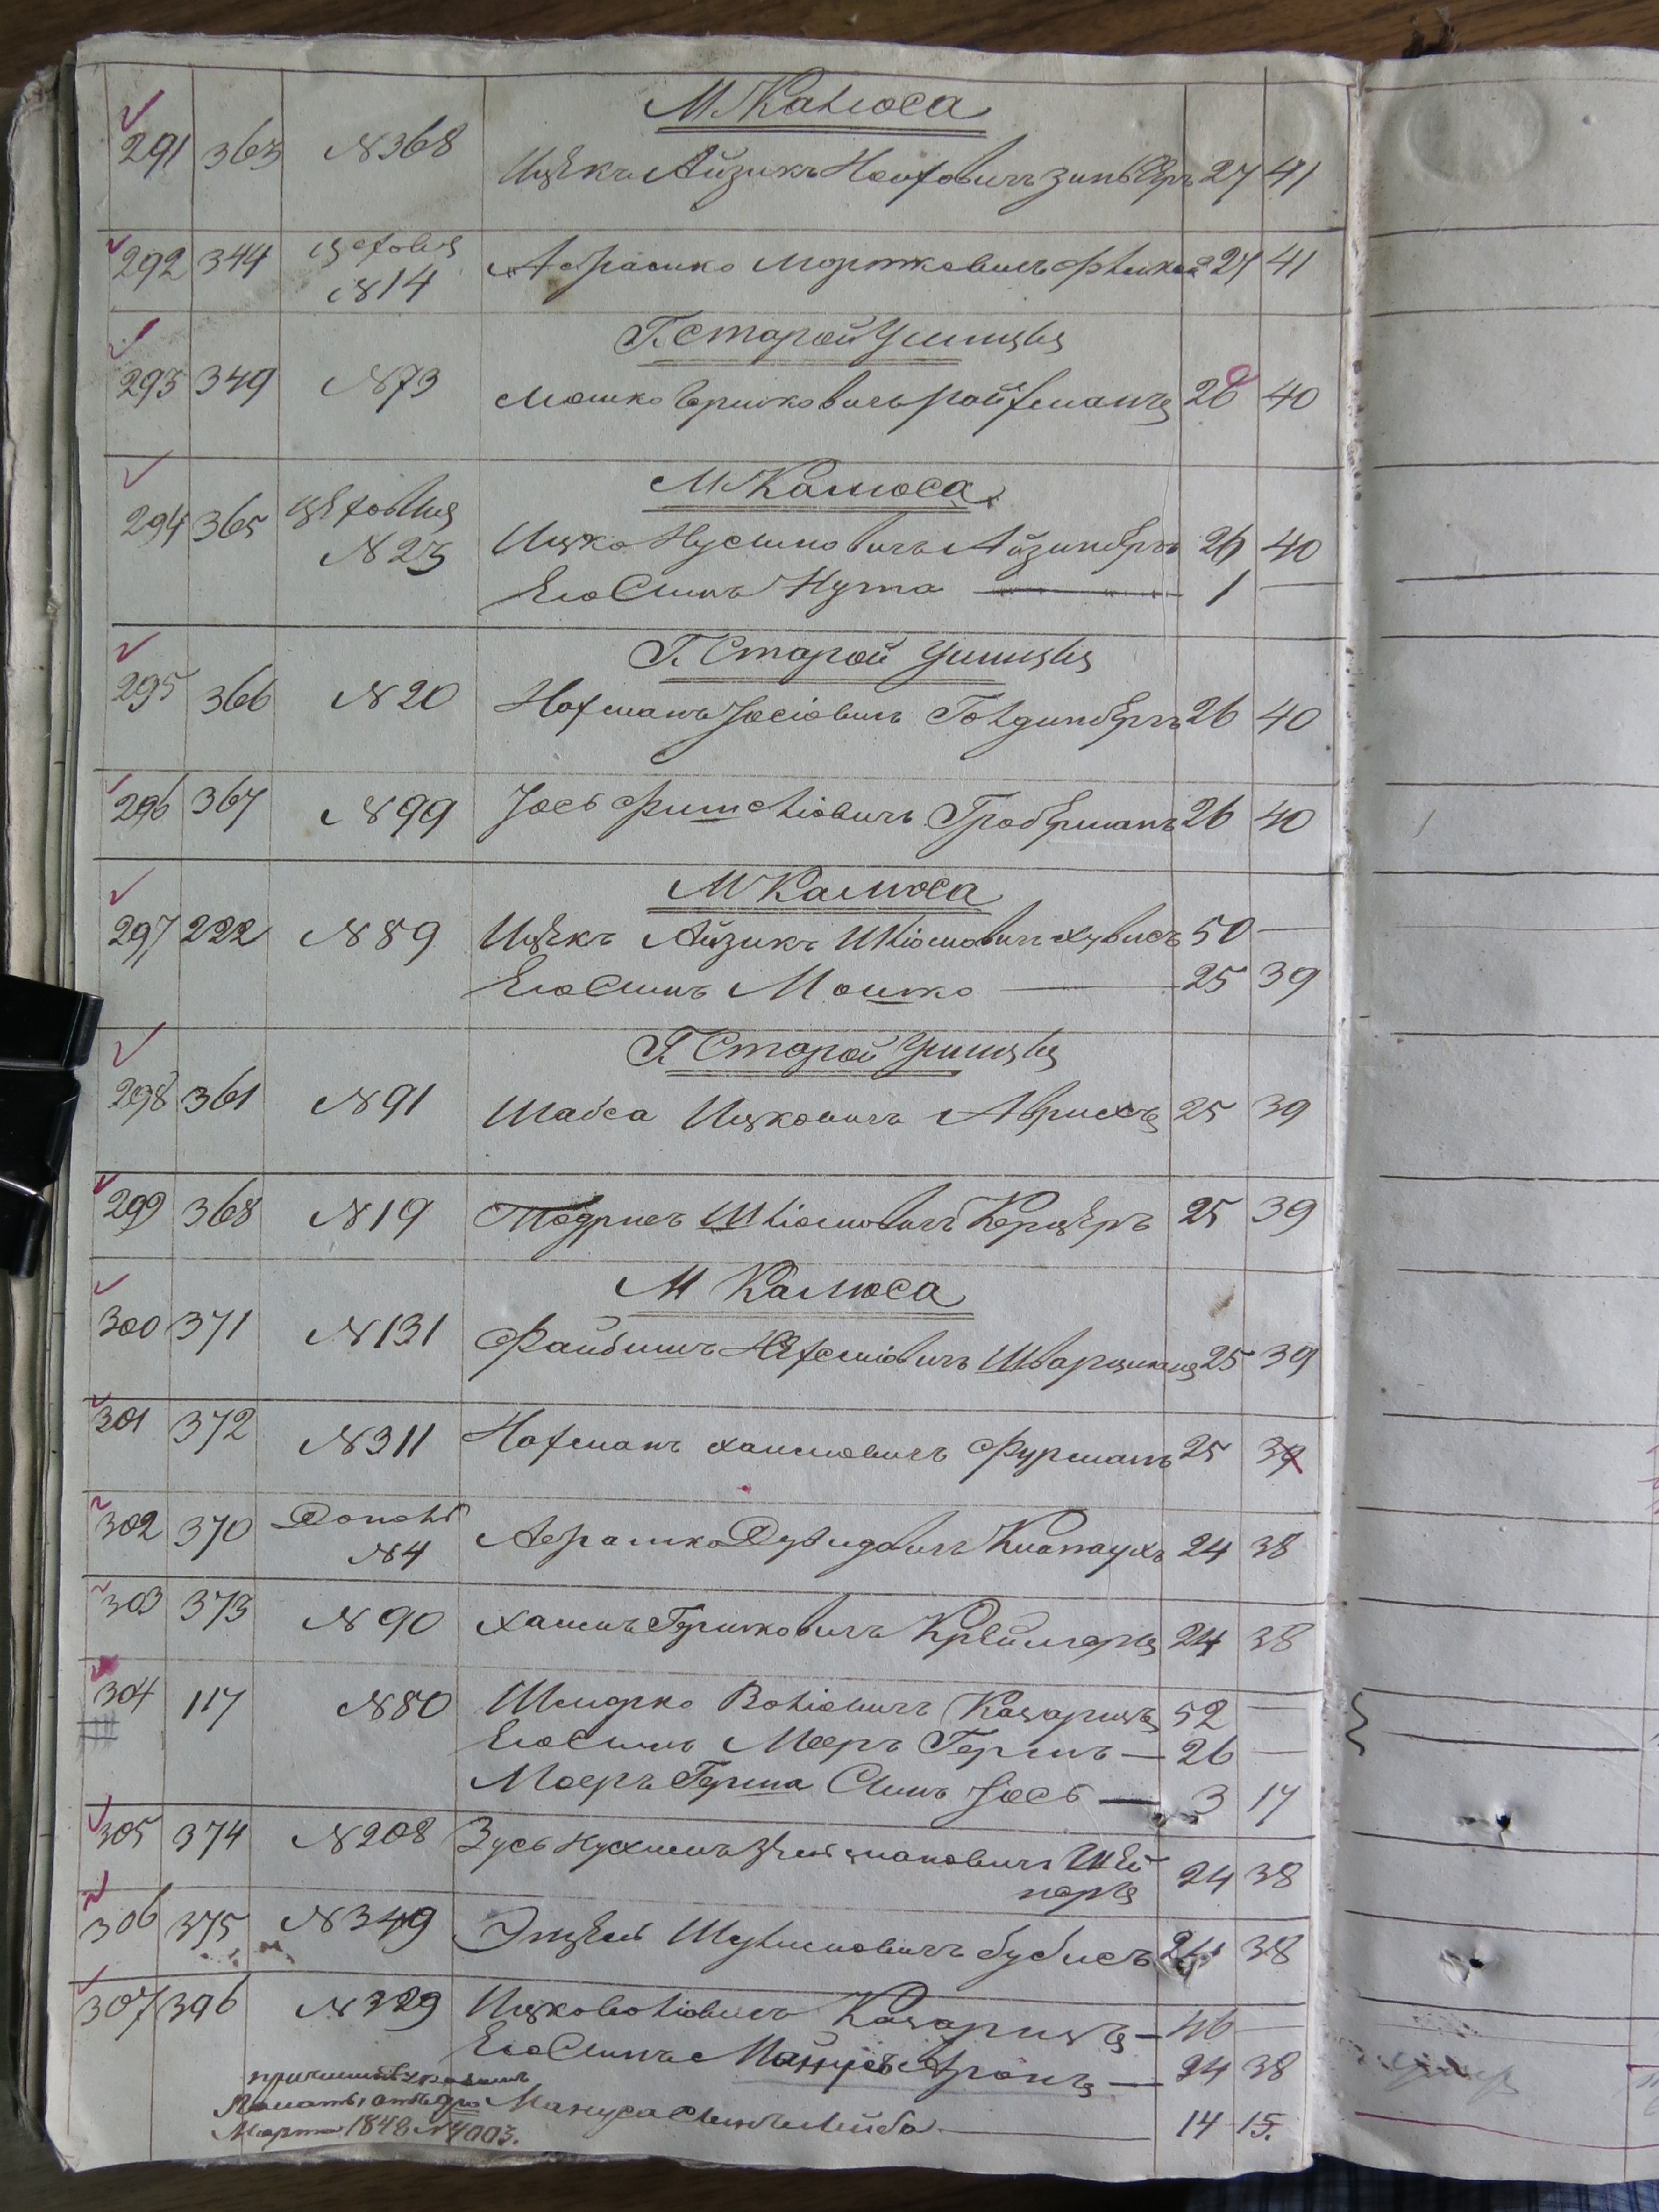 М Калюса
291 363 №368 Ицекъ Айзикъ Наховичъ Зинберъ 27 41
292 344 №14 Абрамко Мортковичъ 27 41
Г. Старой Ушицы
293 349 №73 Мошко Ершковичъ Ройфманъ 26 40
М Калюса
294 365 №23 Ицко Нусимовичъ Айзинберъ 26 40
Его Сынъ Нута 1 —
Г. Старой Ушицы
295 366 №20 Нахманъ Іосіовичъ Голдинберъ 26 40
296 367 №99 Іось Фишеліовичъ Гроберманъ 26 40
М Калюса
297 222 №89 Ицекъ Айзикъ Шліомовичъ Хувисъ 50 —
Его Сынъ Мошко 25 39
Г. Старой Ушицы
298 361 №91 Шабса Ицковичъ 25 39
299 368 №19 Тодрисъ Шліомовичъ Керцеръ 25 39
М Калюса
300 371 №131 Файбишъ Шварцманъ 25 39
301 372 №311 Нахманъ Хаимовичъ Фурманъ 25 39
302 370 №4 Абрамко Дувидовичъ 24 38
303 373 №90 Хаимъ Гершковичъ Креймеръ 24 38
304 117 №80 Шмерко Волиовичъ Кацарицъ 52 —
Его Сынъ Мееръ Гершъ — 26 —
Мееръ Герша Сынъ Іось — 3 17
305 374 №208 Зусь Нухимъ Зейликовичъ Шей
неръ 24 38
306 375 №349 Этцель Шулимовичъ Бубисъ 24 38
307 396 №329 Ицко Волиовичъ Кацарицъ — 46 —
Его Сынъ Манусъ Аронъ — 24 38
Мануса Сынъ Лейба 14 15.
Марта 1848 №4003.